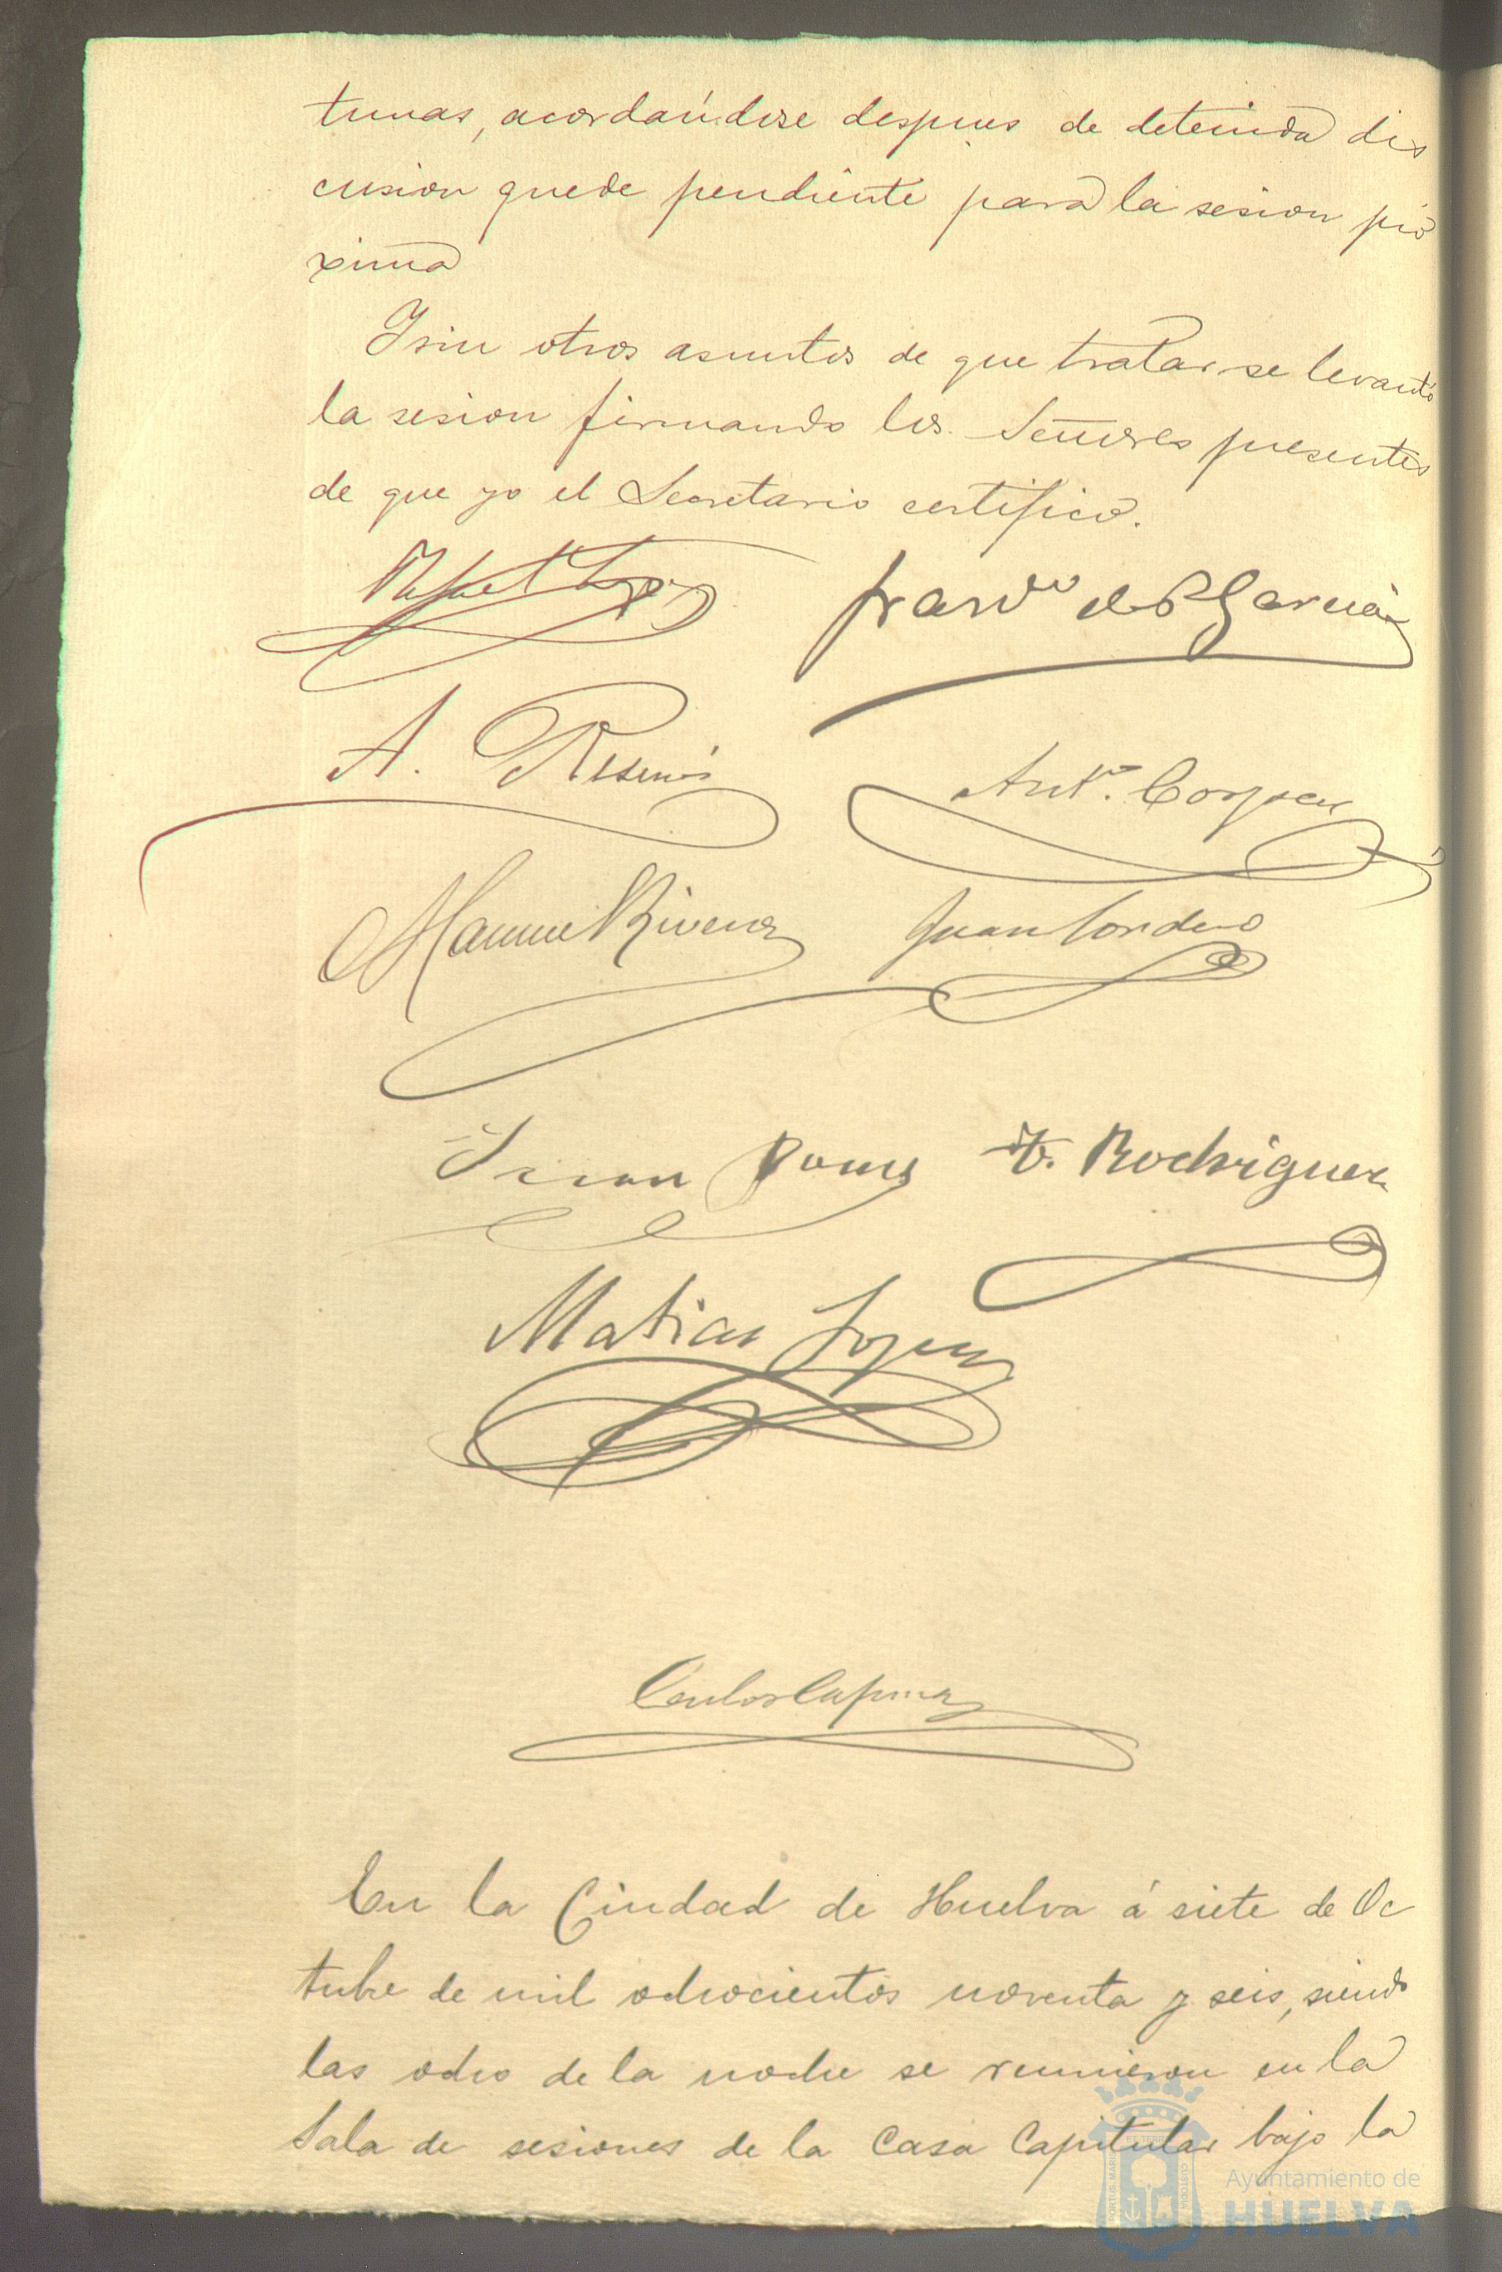 tunas, acordandose despues de detenida dis
cusion quede pendiente para la sesion pró
xima
Y sin otros asuntos de que tratar se levantó
la sesion firmando los Señores presentes
de que yo el Secretario certifico.
Rafael Lopez
Franco de P Garcia
A.
Anto.
Manuel Rivera
Juan Cordero
F. Rodriguez
Matias Lopez
Carlos
En la Ciudad de Huelva á siete de Oc
tubre de mil ochocientos noventa y seis, siendo
las ocho de la noche se reunieron en la
Sala de sesiones de la Casa Capitular bajo la
Ayuntamiento de
HUELVA